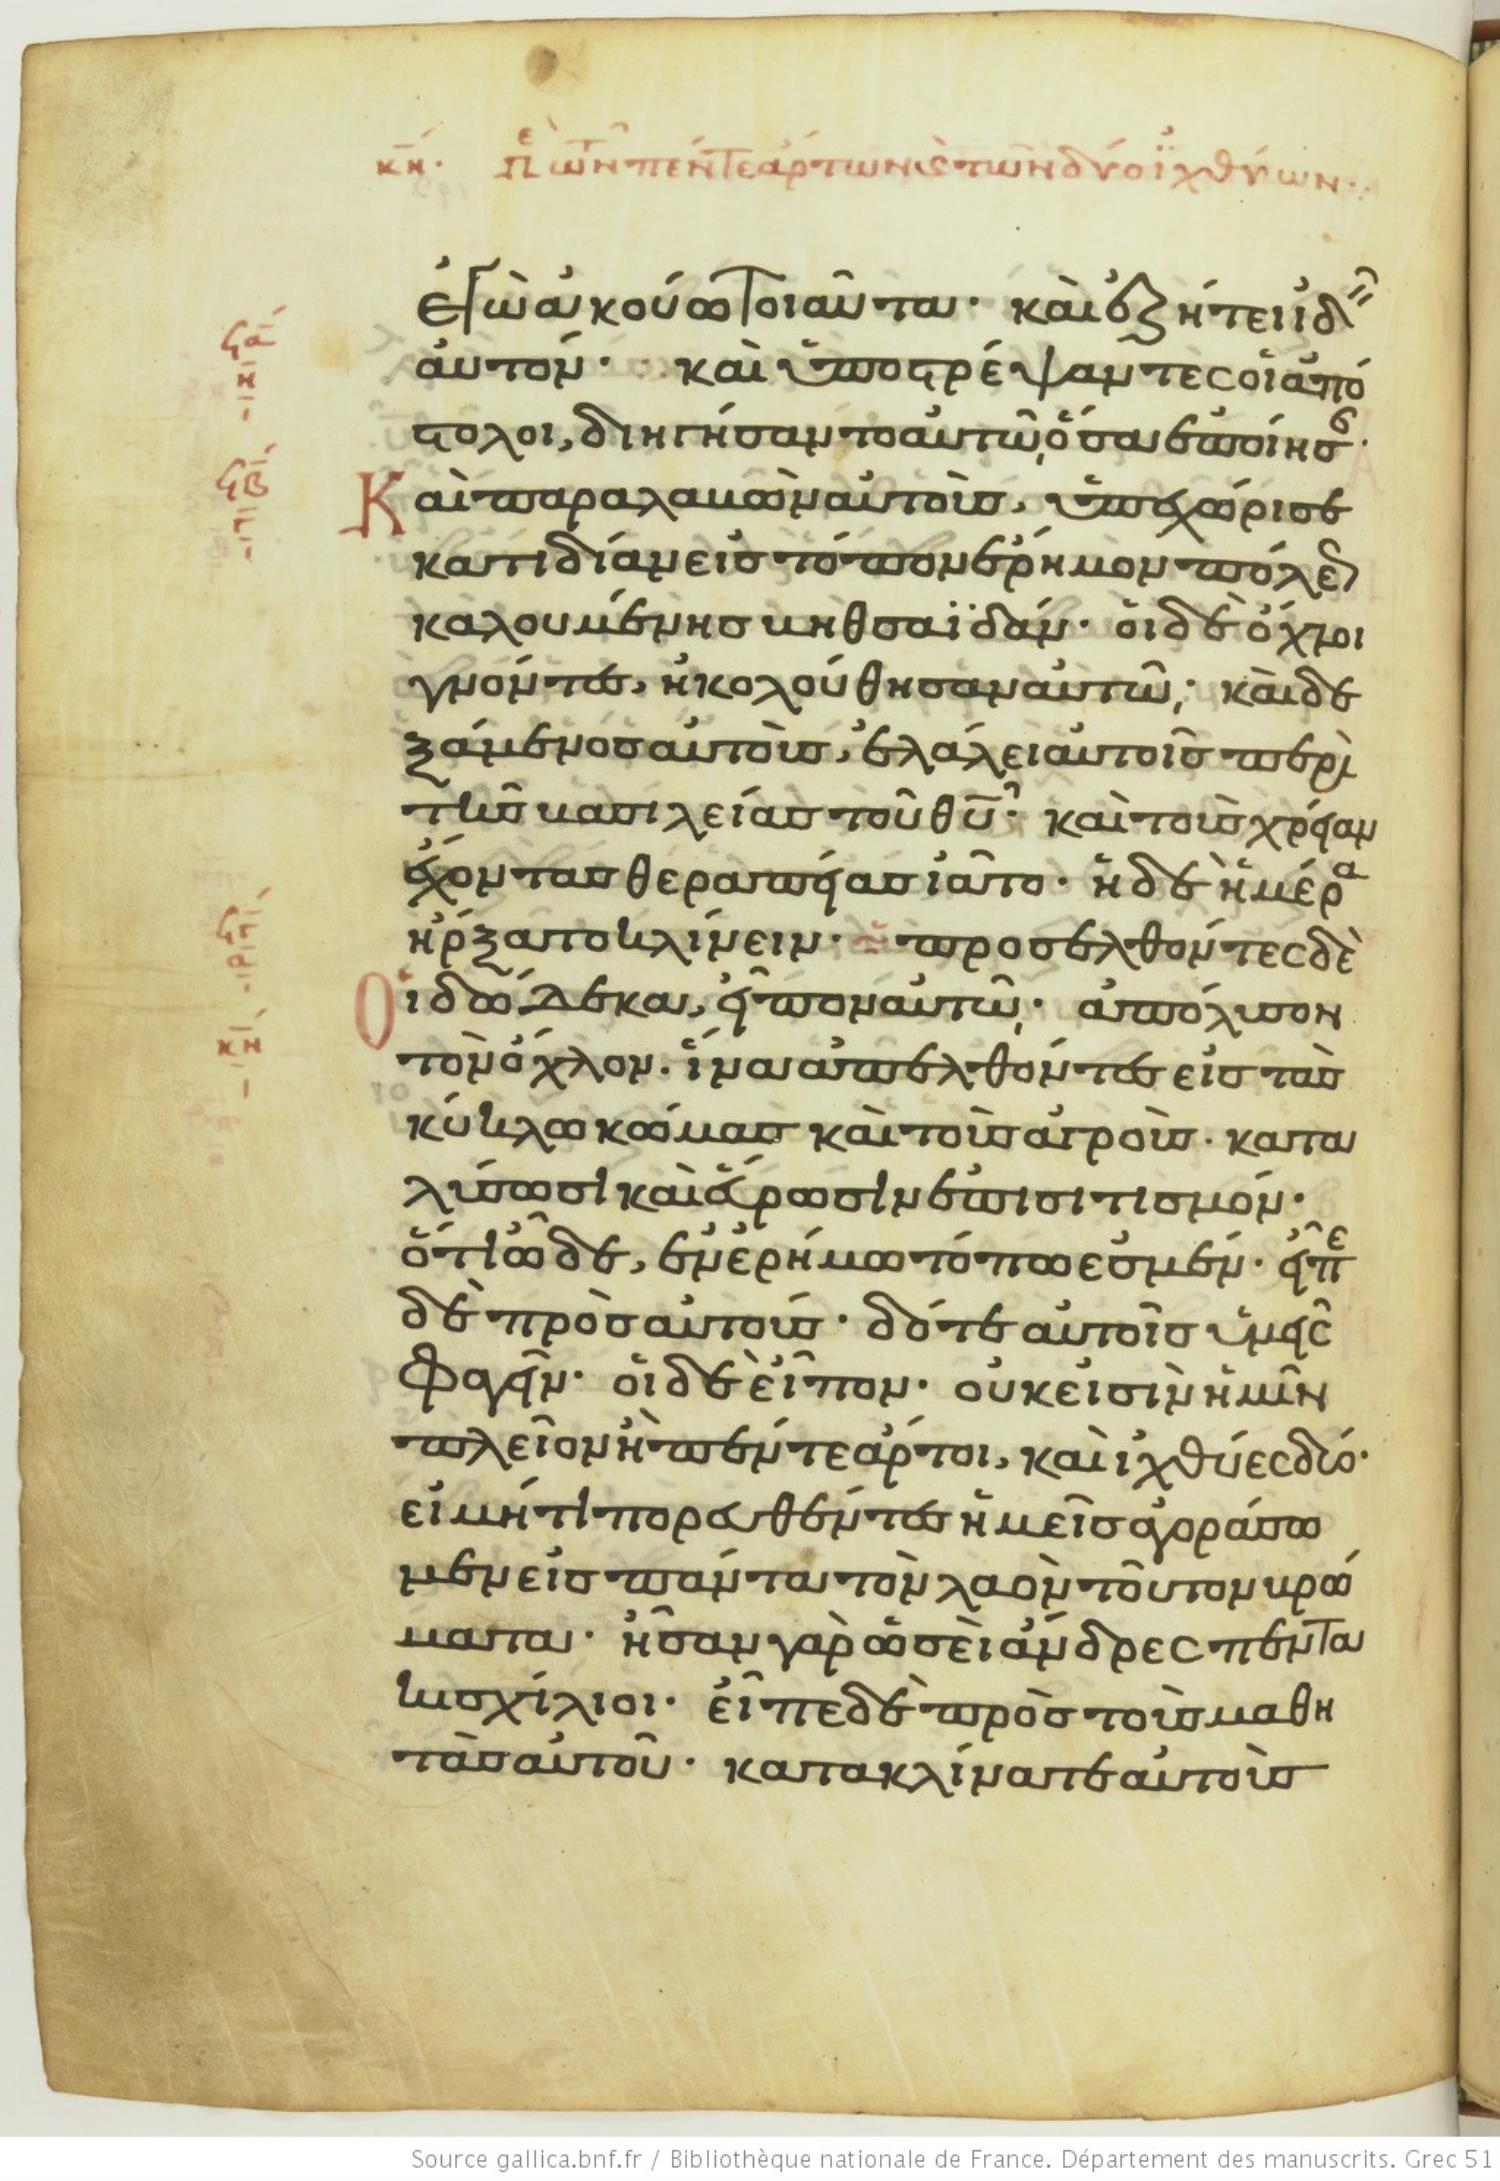 κη. Πε τῶν πέντε ἄρτων ϗ τῶν δύο ἰχθύων.
ἐγὼ ἀκούω τοιαῦτα· καὶ ἐζήτει ἰδεῖν
αὐτόν· καὶ ὑποστρέψαντες οἱ ἀπό
στολοι, διηγήσαντο αὐτῶ, ὅσα ἐποίησ
ϟα
η
Καὶ παραλαβὼν αὐτοὺς, ὑπεχώρισε
ϟβ
κατιδίαν εἰς τόπον ἔρημον πόλε
καλουμένης βηθσαϊδάν· οἱ δὲ ὄχλοι
γνόντες, ἠκολούθησαν αὐτῶ· καὶ δε
ξάμενος αὐτοὺς, ἐλάλει αὐτοῖς περὶ
τῆς βασιλείας τοῦ θυ· καὶ τοὺς χρείαν
ἔχοντας θεραπείας ἰᾶτο· ἡ δὲ ἡμέρα
ἤρξατο κλίνειν· προσελθόντες δὲ
Οἱ δώδεκα, εἶπον αὐτῶ· ἀπόλυσον
κη
τὸν ὄχλον. ἵνα ἀπελθόντες εἰς τὰς
κύκλω κώμας καὶ τοὺς ἀγροὺς. κατα
λύσωσι καὶ εὕρωσιν ἐπισιτισμόν·
ὅτι ὧδε, ἐν ἐρήμω τόπω ἐσμέν· εἶπε
δὲ πρὸς αὐτούς· δότε αὐτοῖς ὑμεῖς
φαγεῖν· οἱ δὲ εἶπον· οὐκ εἰσὶν ἡμῖν
πλεῖον ἢ πέντε ἄρτοι, καὶ ἰχθύες δύο·
εἰ μήτι πορευθέντες ἡμεῖς ἀγοράσω
μεν εἰς πάντα τὸν λαὸν τοῦτον βρώ
ματα· ἦσαν γὰρ ὡσεὶ ἄνδρες πεντα
κισχίλιοι· εἶπε δὲ πρὸς τοὺς μαθη
τὰς αὐτοῦ· κατακλίνατε αὐτοὺς
Source gallica.bnf.fr / Bibliothèque nationale de France. Département des manuscrits. Grec 51